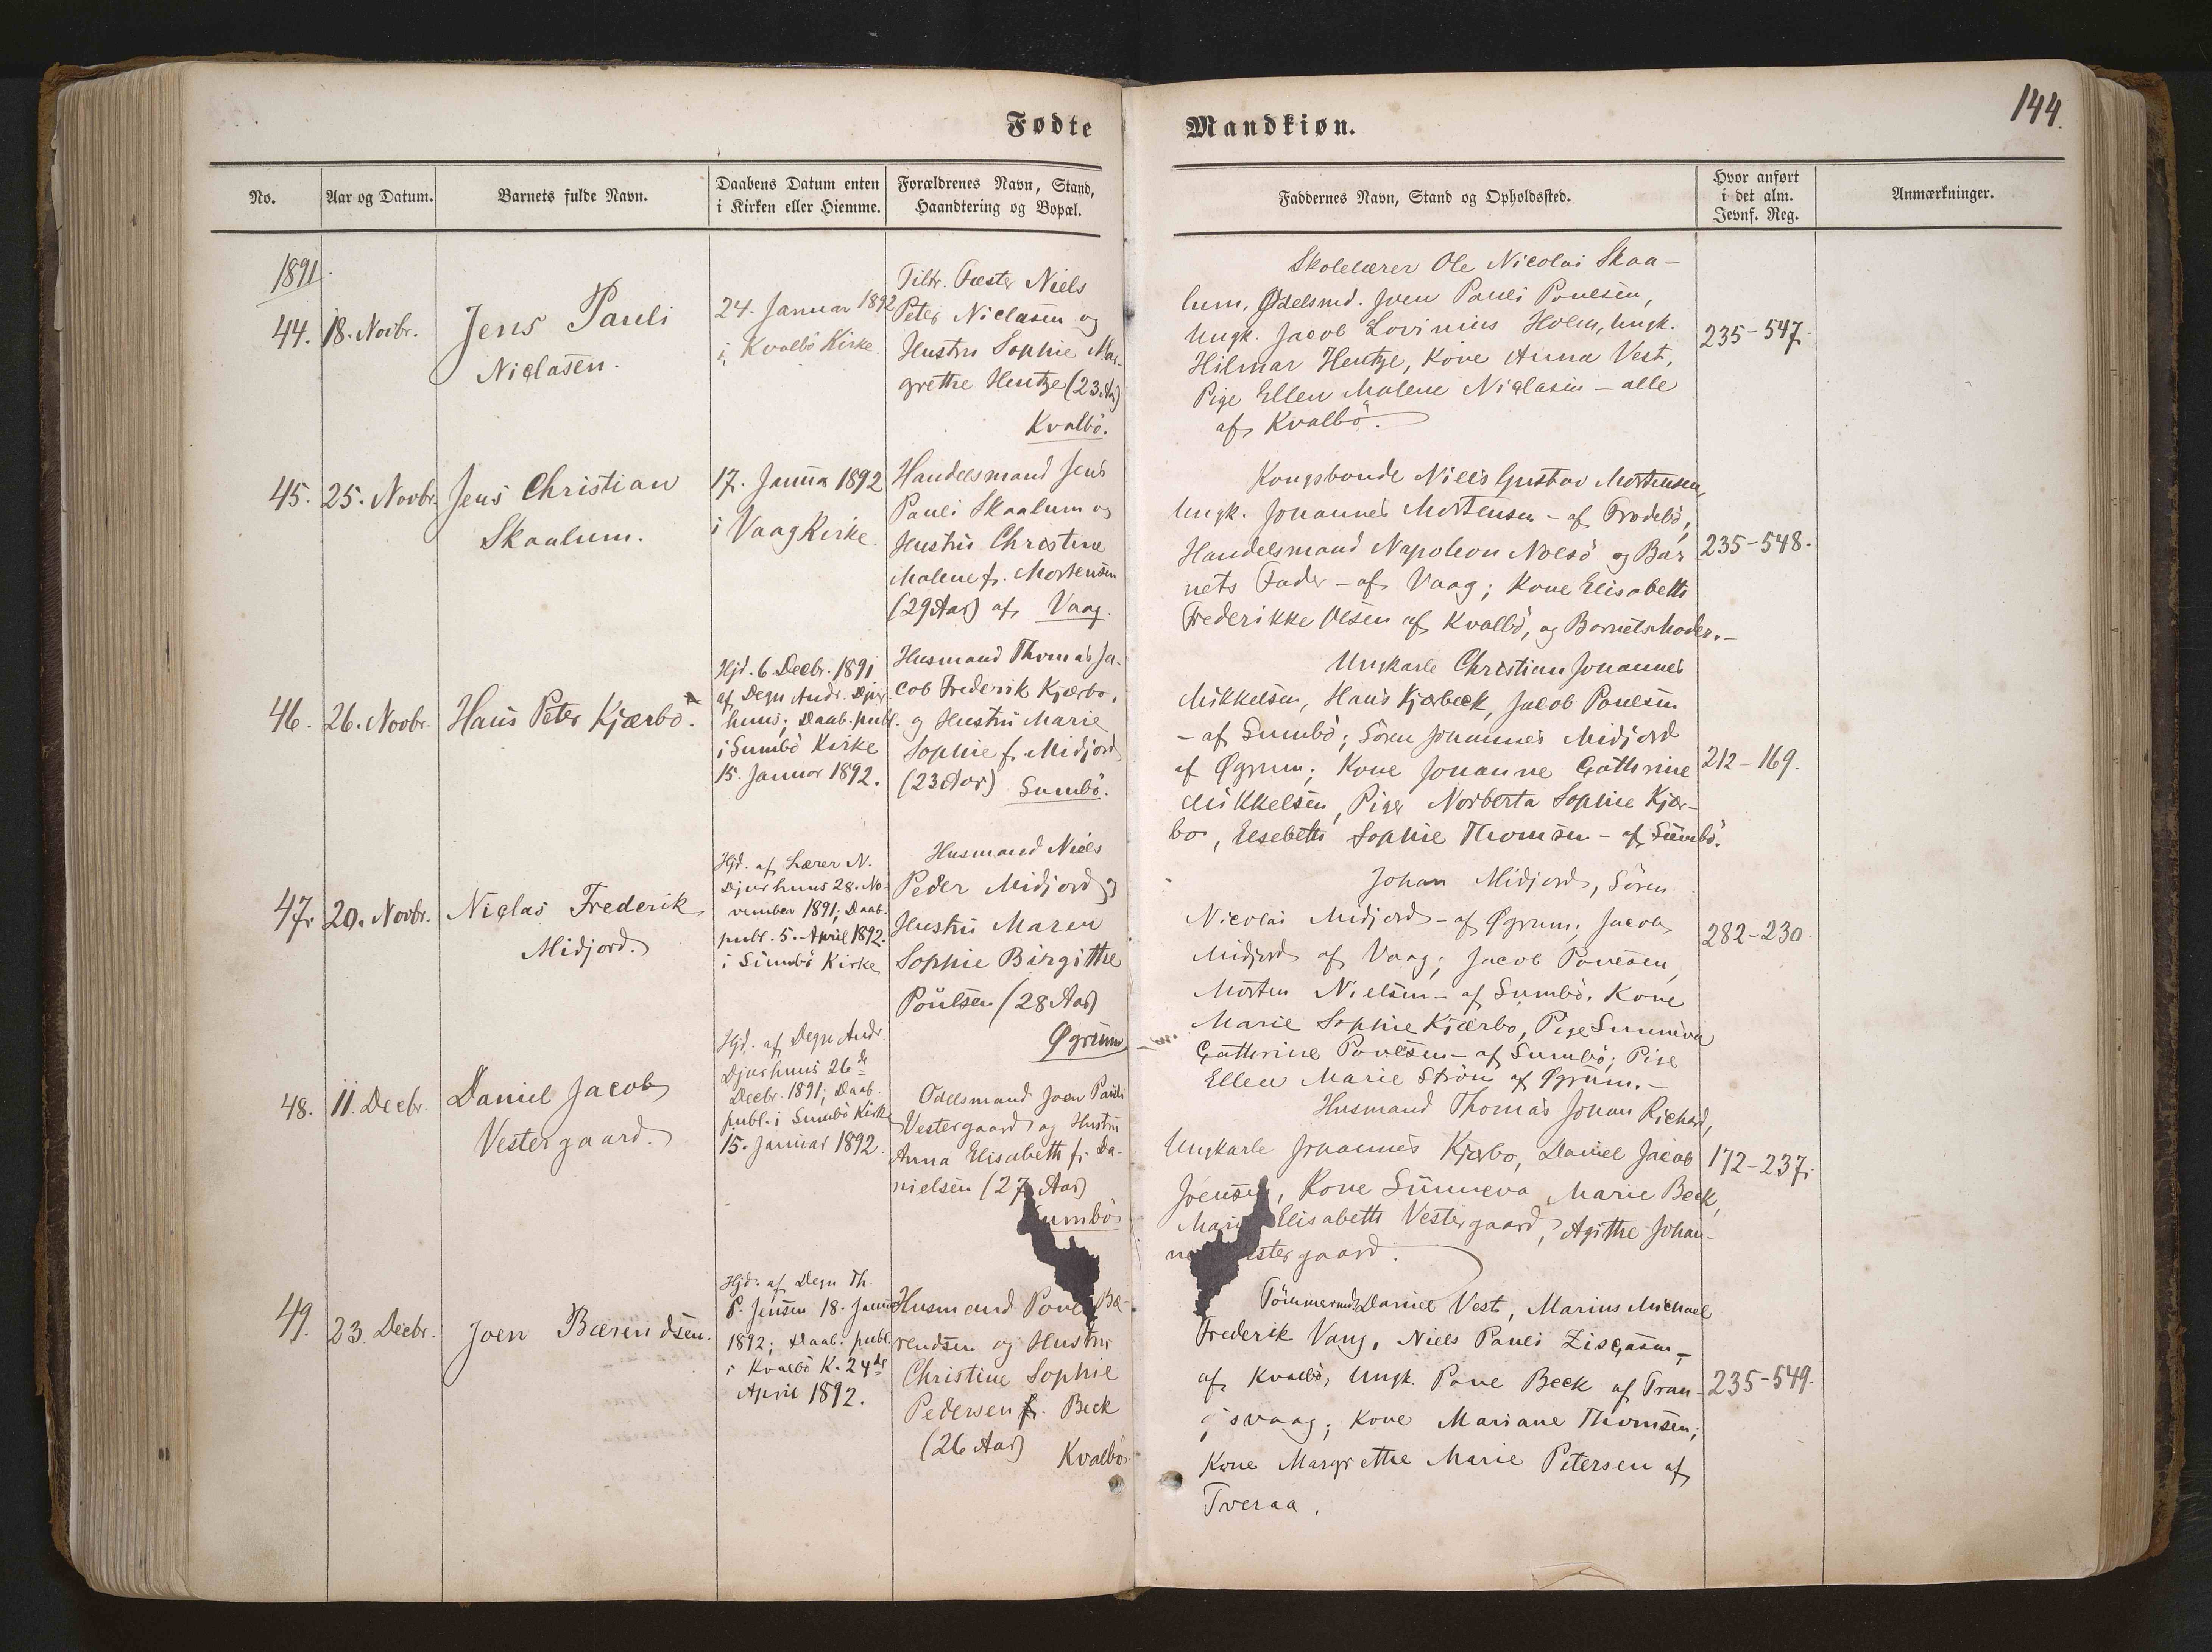 144.
Fødte
Mandkiøn.
No.
Aar og Datum.
Barnets fulde Navn.
Daabens Datum enten
i Kirken eller Hiemme.
Forældrenes Navn, Stand,
Haandtering og Bopæl.
Faddernes Navn, Stand og Opholdssted.
Hvor anført
i det alm.
Jevnf. Reg.
Anmærkninger.
1891.
44.
18. Novbr.
Jens Pauli
Niclasen.
24. Januar 1892
i Kvalbö Kirke.
Fæster Niels
Peter Niclasen og
Hustru Sophie Mar-
grethe Hentze (23 Aar)
Kvalbö.
Skolelærer Ole Nicolai Skaa-
lum, Ødelsmd. Joen Pauli Poulsen,
Ungk. Jacob Lovinius Holm, Ungk.
Hilmar Hentze, Kone Anna Vest,
Pige Ellen Malene Niclasen - alle
af Kvalbö.
235-547.
45.
25. Novbr.
Jens Christian
Skaalum.
17. Januar 1892
i Vaag Kirke.
Handelsmand Jens
Pauli Skaalum og
Hustru Christine
Malene f. Mortensen
(29 Aar) af Vaag.
Kongsbonde Niels Gustav Mortensen,
Ungk. Johannes Mortensen - af Frodebö,
Handelsmand Napoleon Nolsö og Bar-
nets Fader - af Vaag; Kone Elisabeth
Frederikke Olsen af Kvalbö, og Barnets Moder. -
235-548.
46.
26. Novbr.
Hans Peter Kjærbo.
Hjd. 6. Decbr. 1891
af Degn Andr. Djur-
huus; Daab. publ.
i Sumbö Kirke
15. Januar 1892.
Husmand Thomas Ja-
cob Frederik Kjærbo,
og Hustru Marie
Sophie f. Midjord
(23 Aar) Sumbö.
Ungkarle Christian Johannes
Mikkelsen, Hans Kjærbeck, Jacob Poulsen
- af Sumbö; Sören Johannes Midjord
af Øgrum; Kone Johanne Cathrine
Mikkelsen, Piger Norberta Sophie Kjær-
bo, Elsebeth Sophie Thomsen - af Sumbö.
212-169.
47.
20. Novbr.
Niclas Frederik
Midjord.
Hjd. af Lærer N.
Djurhuus 28. No-
vember 1891; Daab.
publ. 5. April 1892.
i Sumbö Kirke
Husmand Niels
Peder Midjord og
Hustru Maren
Sophie Birgithe
Poulsen (28 Aar)
Øgrum
Johan Midjord, Sören
Nicolai Midjord - af Øgrum; Jacob
Midjord af Vaag; Jacob Poulsen,
Morten Nielsen - af Sumbö. Kone
Marie Sophie Kjærbo, Pige Sunneva
Cathrine Poulsen - af Sumbö; Pige
Ellen Marie Ström af Øgrum. -
282-230.
48.
11. Decbr.
Daniel Jacob
Vestergaard.
Hjd. af Degn Andr.
Djurhuus 26de
Decbr. 1891; Daab.
publ. i Sumbö Kirke
15. Januar 1892.
Odelsmand Joen Pauli
Vestergaard og Hustru
Anna Elisabeth f. Da-
nielsen (27 Aar)
Sumbö
Husmand Thomas Johan Richard,
Ungkarle Johannes Kjærbo, Daniel Jacob
Joensen, Kone Sunneva Marie Beck,
Marie Elisabeth Vestergaard, Agithe Johan-
ne Vestergaard.
172-237.
49.
23 Decbr.
Joen Bærendsen.
Hjd. af Degn Th.
P. Jensen 18. Januar
1892; Daab. publ.
i Kvalbö K. 24de
April 1892.
Husmand Poul Bæ-
rendsen og Hustru
Christine Sophie
Pedersen f. Beck
(26 Aar) Kvalbö.
Tömmermd. Daniel Vest, Marius Michael
Frederik Vang, Niels Pauli -
af Kvalbö, Ungk. Poul Beck af Tran-
gisvaag; Kone Mariane Thomsen,
Kone Margrethe Marie Petersen af
Tveraa.
235-549.